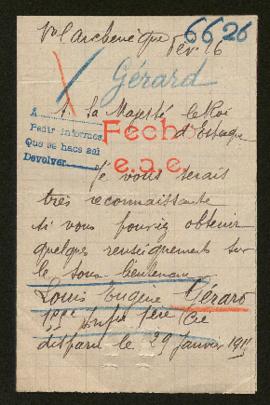 6626
Fev. 16
Gérard
A Sa Majesté le Roi
d'Espagne
A
Pedir informes
Que se hace así
Devolver
Fecho
e.a.e.
Je vous serais
très reconnaissante
si vous pouviez obtenir
quelques renseignements sur
le sous lieutenant
Louis Eugène Gérard
Cie
disparu le 29 Janvier 1915